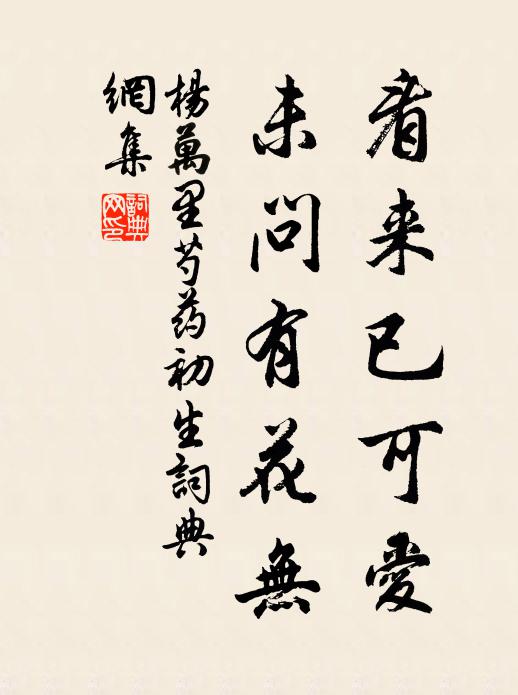 看来已可愛
未問有花無
楊萬里芍药初生詞典
網集
詞典
网印